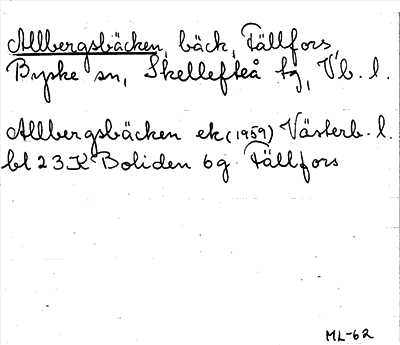 Allbergsbäcken, bäck, Fällfors,
Byske sn, Skellefteå tg, Vb. l.
Allbergsbäcken ek (1959) Västerb. l.
bl 23 K Boliden 6g Fällfors
ML-62